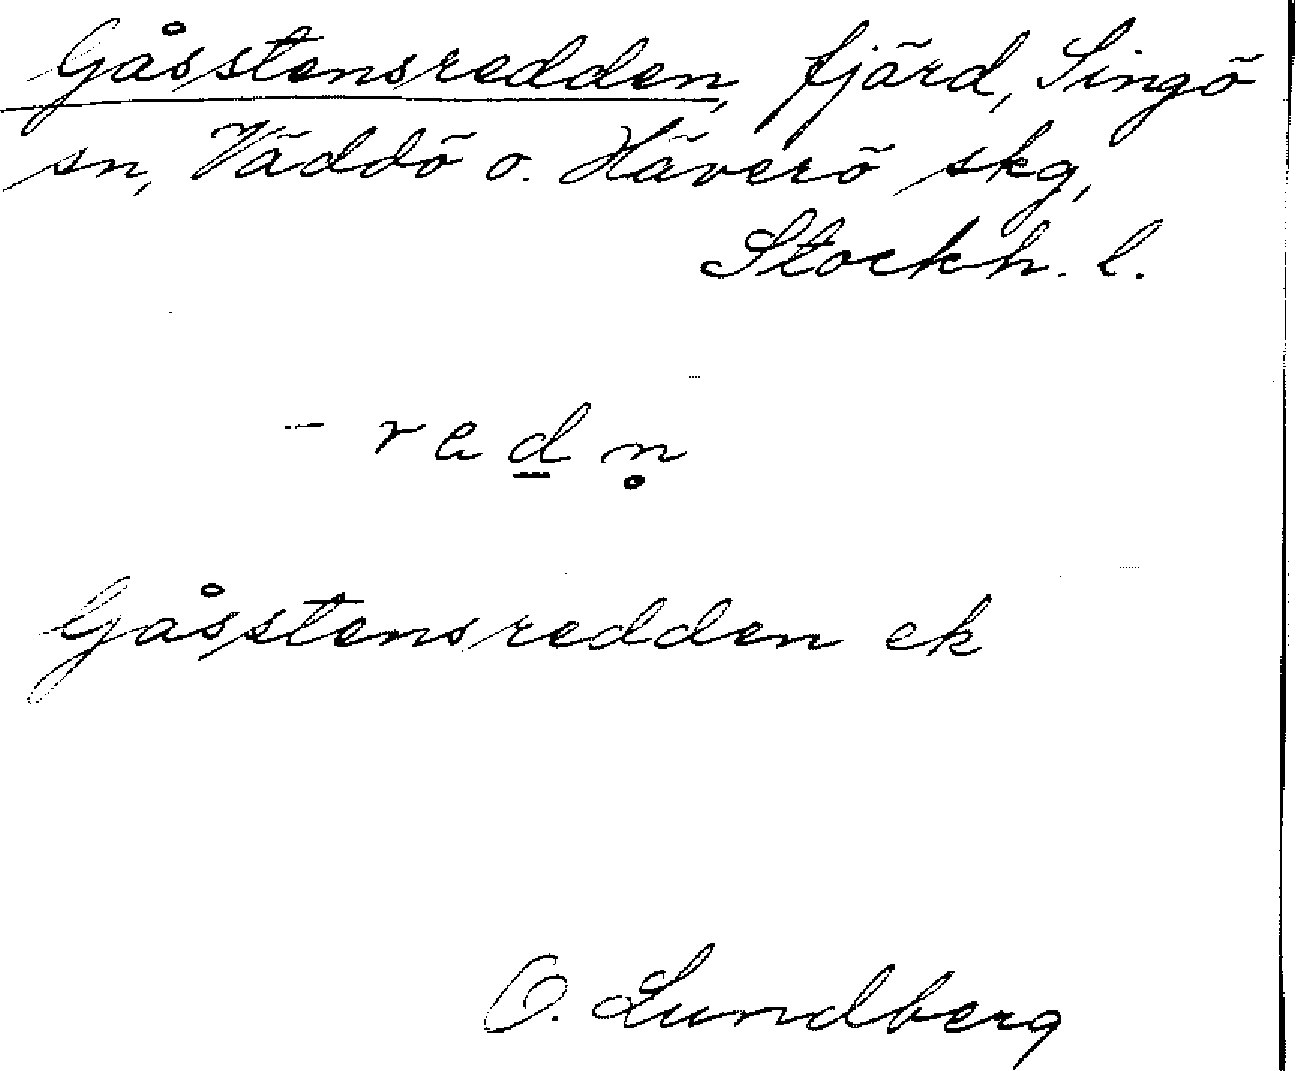 Gåsstensredden, fjärd, Singö
sn, Väddö o. Häverö skg,
Stockh. l.
- red̲n̥
Gåsstensredden ek
O. Lundberg